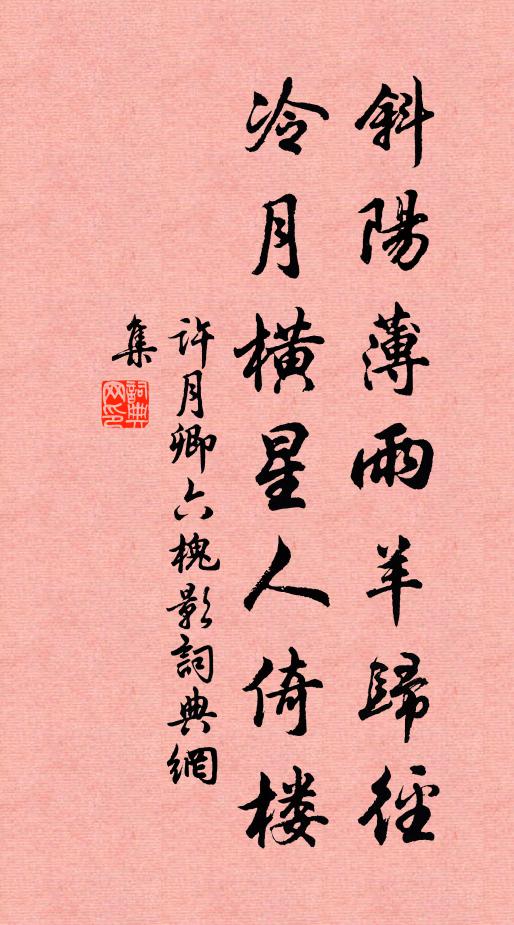 斜陽薄雨羊歸徑
冷月橫星人倚楼
许月卿六槐影詞典網
集
詞典
网印